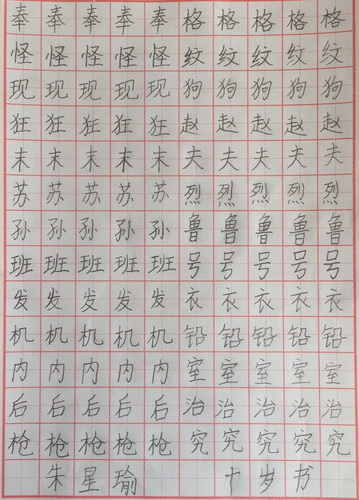 奉奉奉奉奉格格格格格
怪怪怪怪怪纹纹纹纹纹
现现现现现狗狗狗狗狗
狂狂狂狂狂赵赵赵赵赵
末末末末末夫夫夫夫夫
苏苏苏苏苏烈烈烈烈烈
孙孙孙孙孙鲁鲁鲁鲁鲁
班班班班班号号号号号
发发发发发衣衣衣衣衣
机机机机机铅铅铅铅铅
内内内内内室室室室室
后后后后后治治治治治
枪枪枪枪枪究究究究究
朱星瑜 十岁书